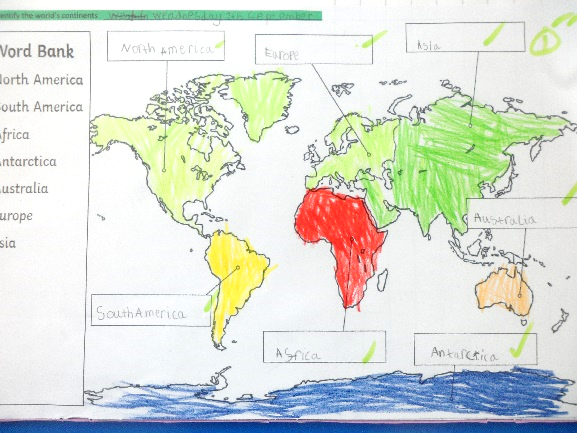 dentify the world's continents Wednesday 7th September
Word Bank
North America
South America
Africa
Antarctica
Australia
urope
sia
North America
Europe
Asia
Australia
South America
Africa
Antarctica
1